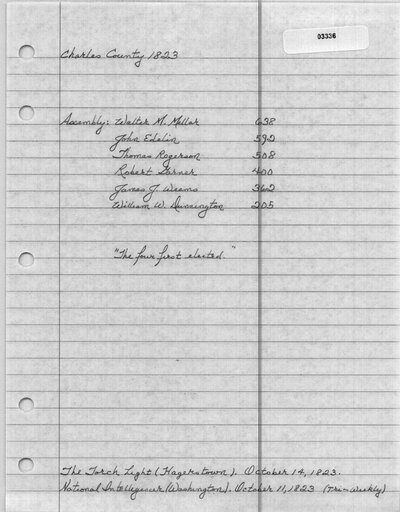 03336
Charles County 1823
Assembly: Walter M. Millar 638
John Edelin 592
Thomas Rogerson 508
Robert Garner 400
James J. Weems 362
William W. Dunnington 205
"The four first elected."
The Torch Light (Hagerstown). October 14, 1823.
National Intelligencer (Washington). October 11, 1823 (Tri-Weekly)